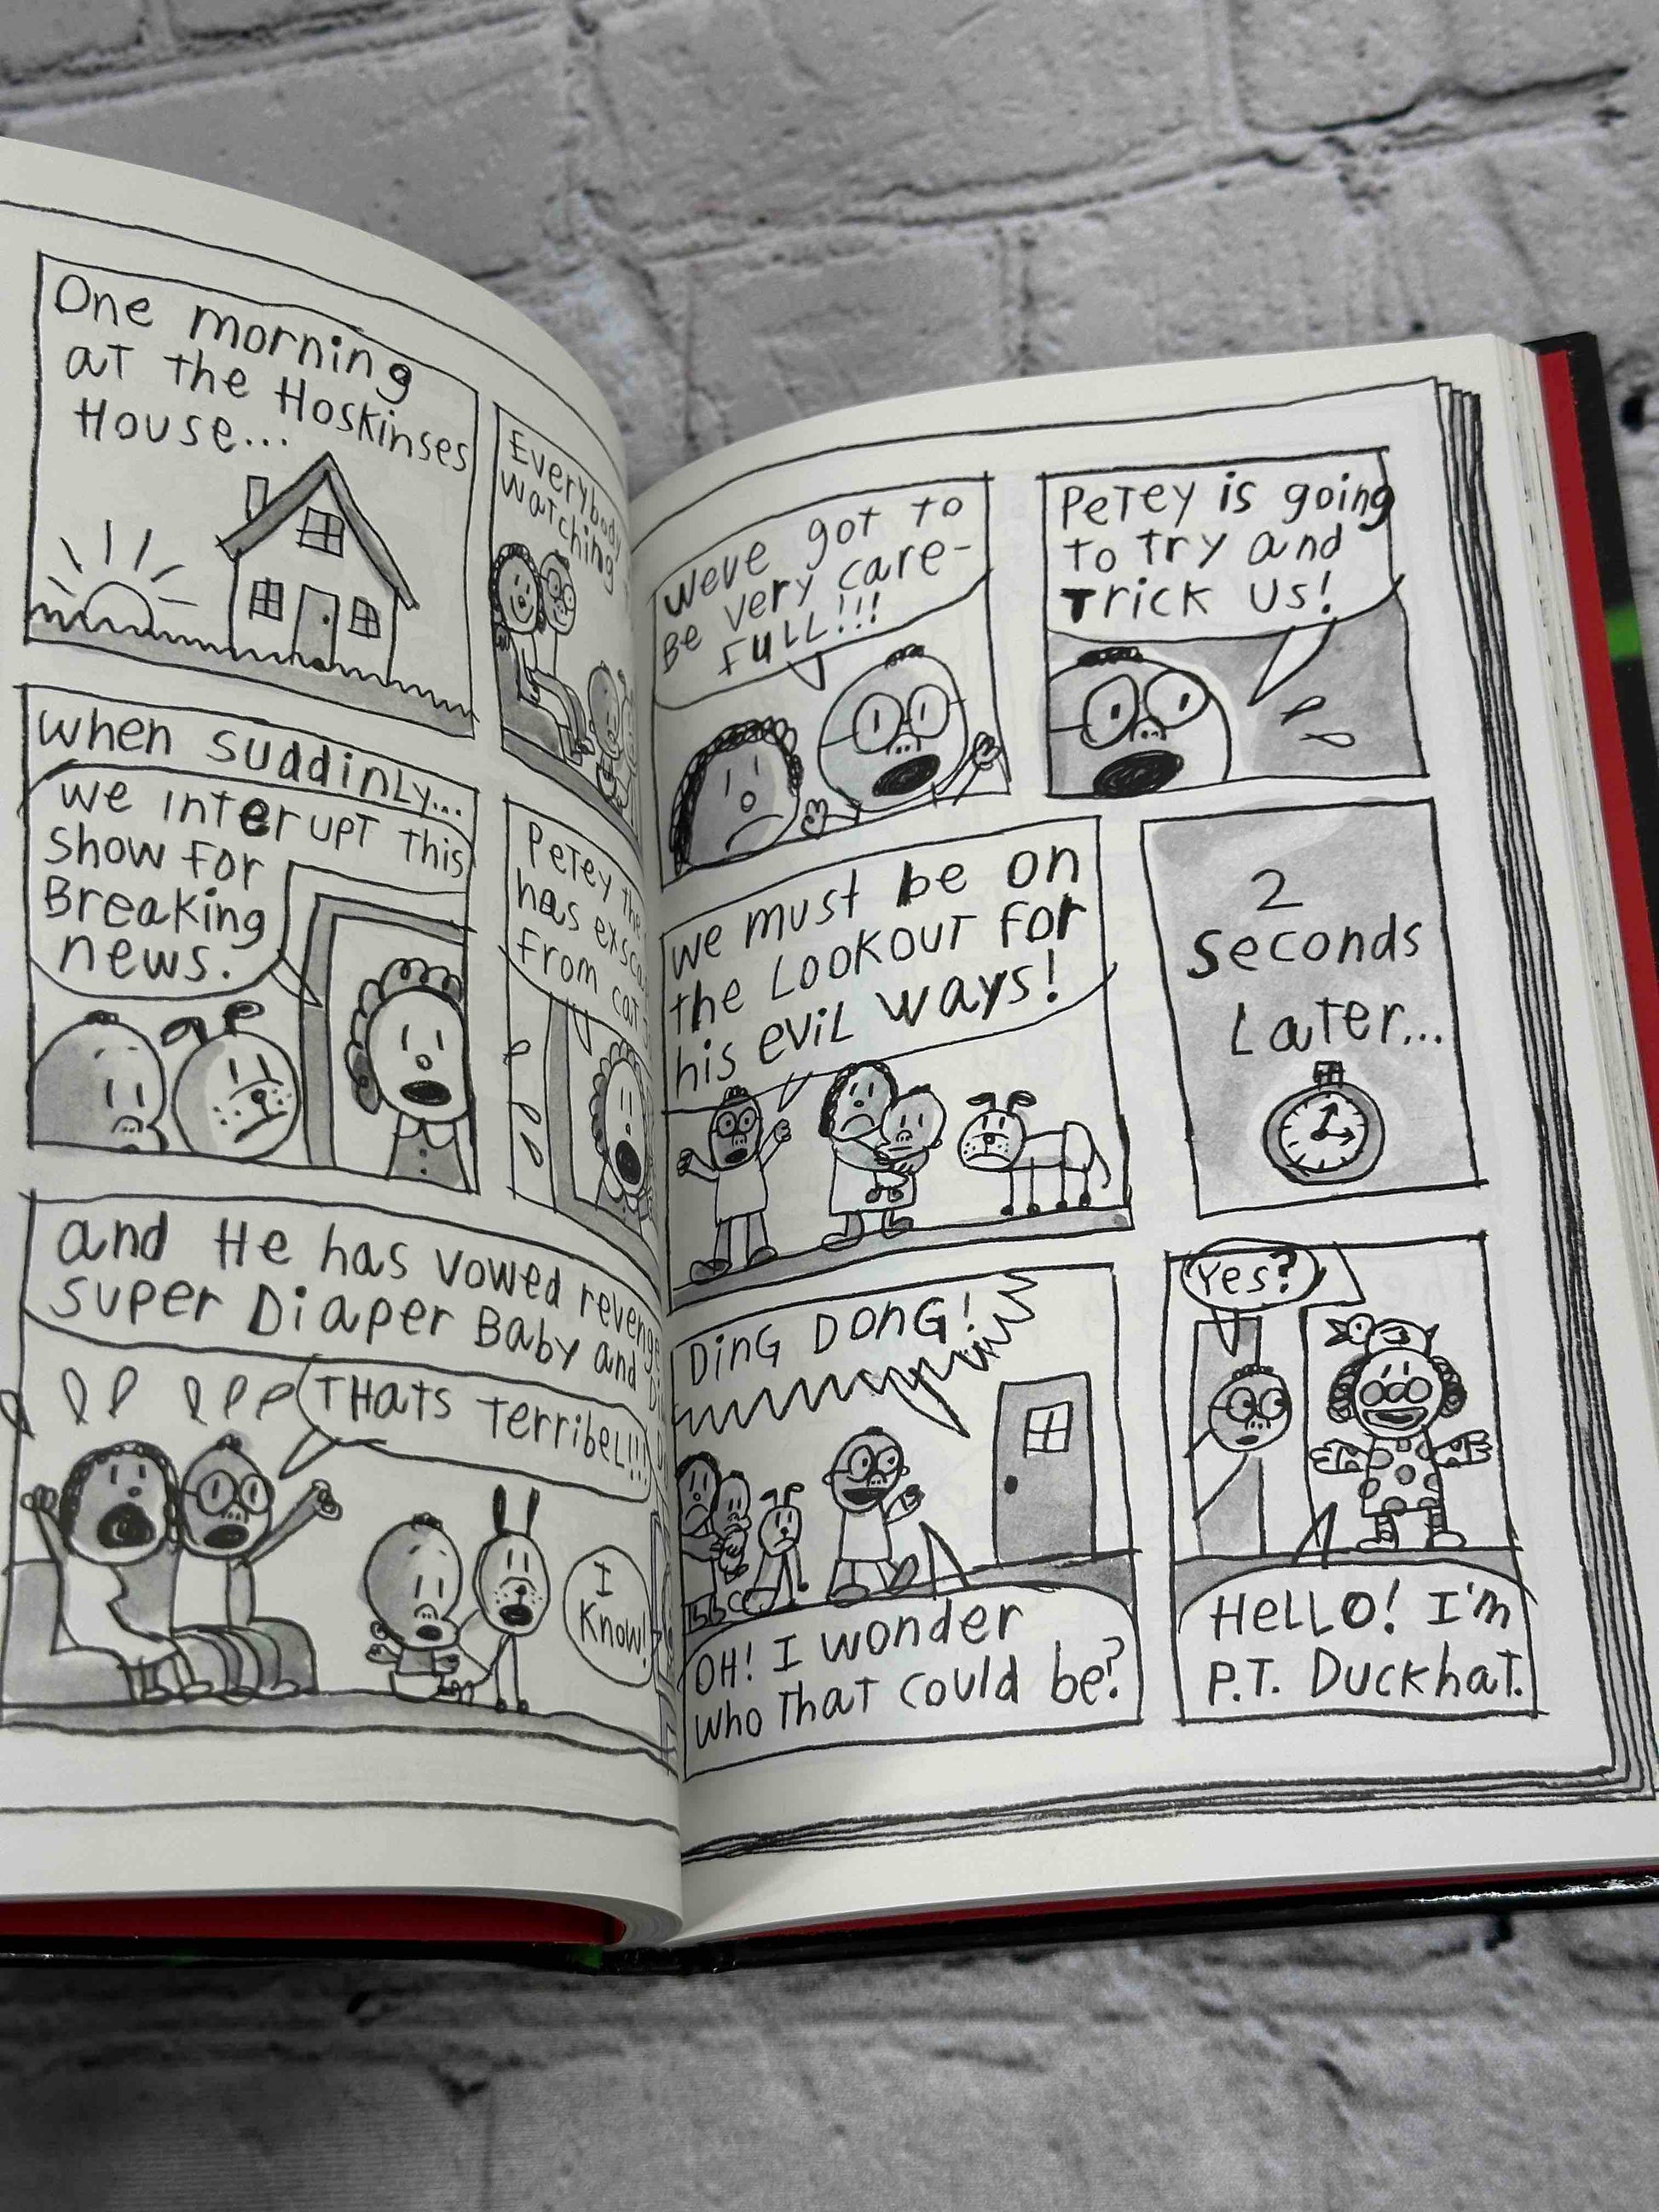 One morning
at the Hoskinses
House...
Everybody
watching
when suddinly...
we interupt this
show for
Breaking
news.
Petey the
has
from cat
and He has vowed revenge
super Diaper Baby and
THats Terribel!!!
I
Know!
weve got to
Be very care-
full!!!
Petey is going
to try and
Trick us!
we must be on
the Lookout for
his evil ways!
2
seconds
Later...
Ding Dong!
OH! I wonder
who that could be?
Yes?
Hello! I'm
P.T. Duckhat.